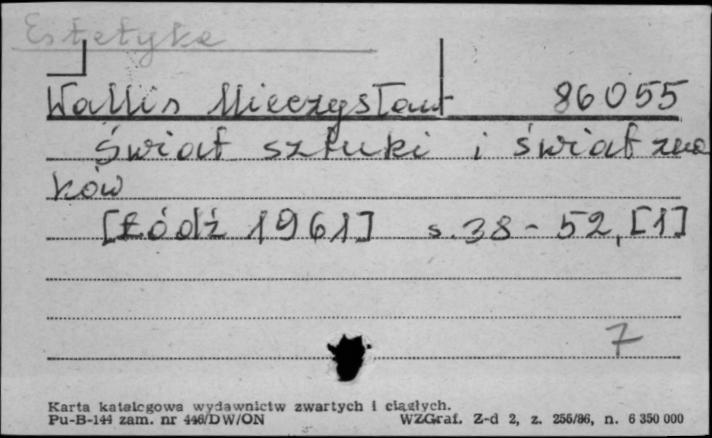 Estetyka
Wallis Mieczysław 86055
Świat sztuki i świat zna
ków
[Łódź 1961] s. 38-52, [1]
7
Karta katalogowa wydawnictw zwartych i ciągłych.
Pu-B-144 zam. nr 446/DW/ON WZGraf. Z-d 2, z. 256/86, n. 6 350 000